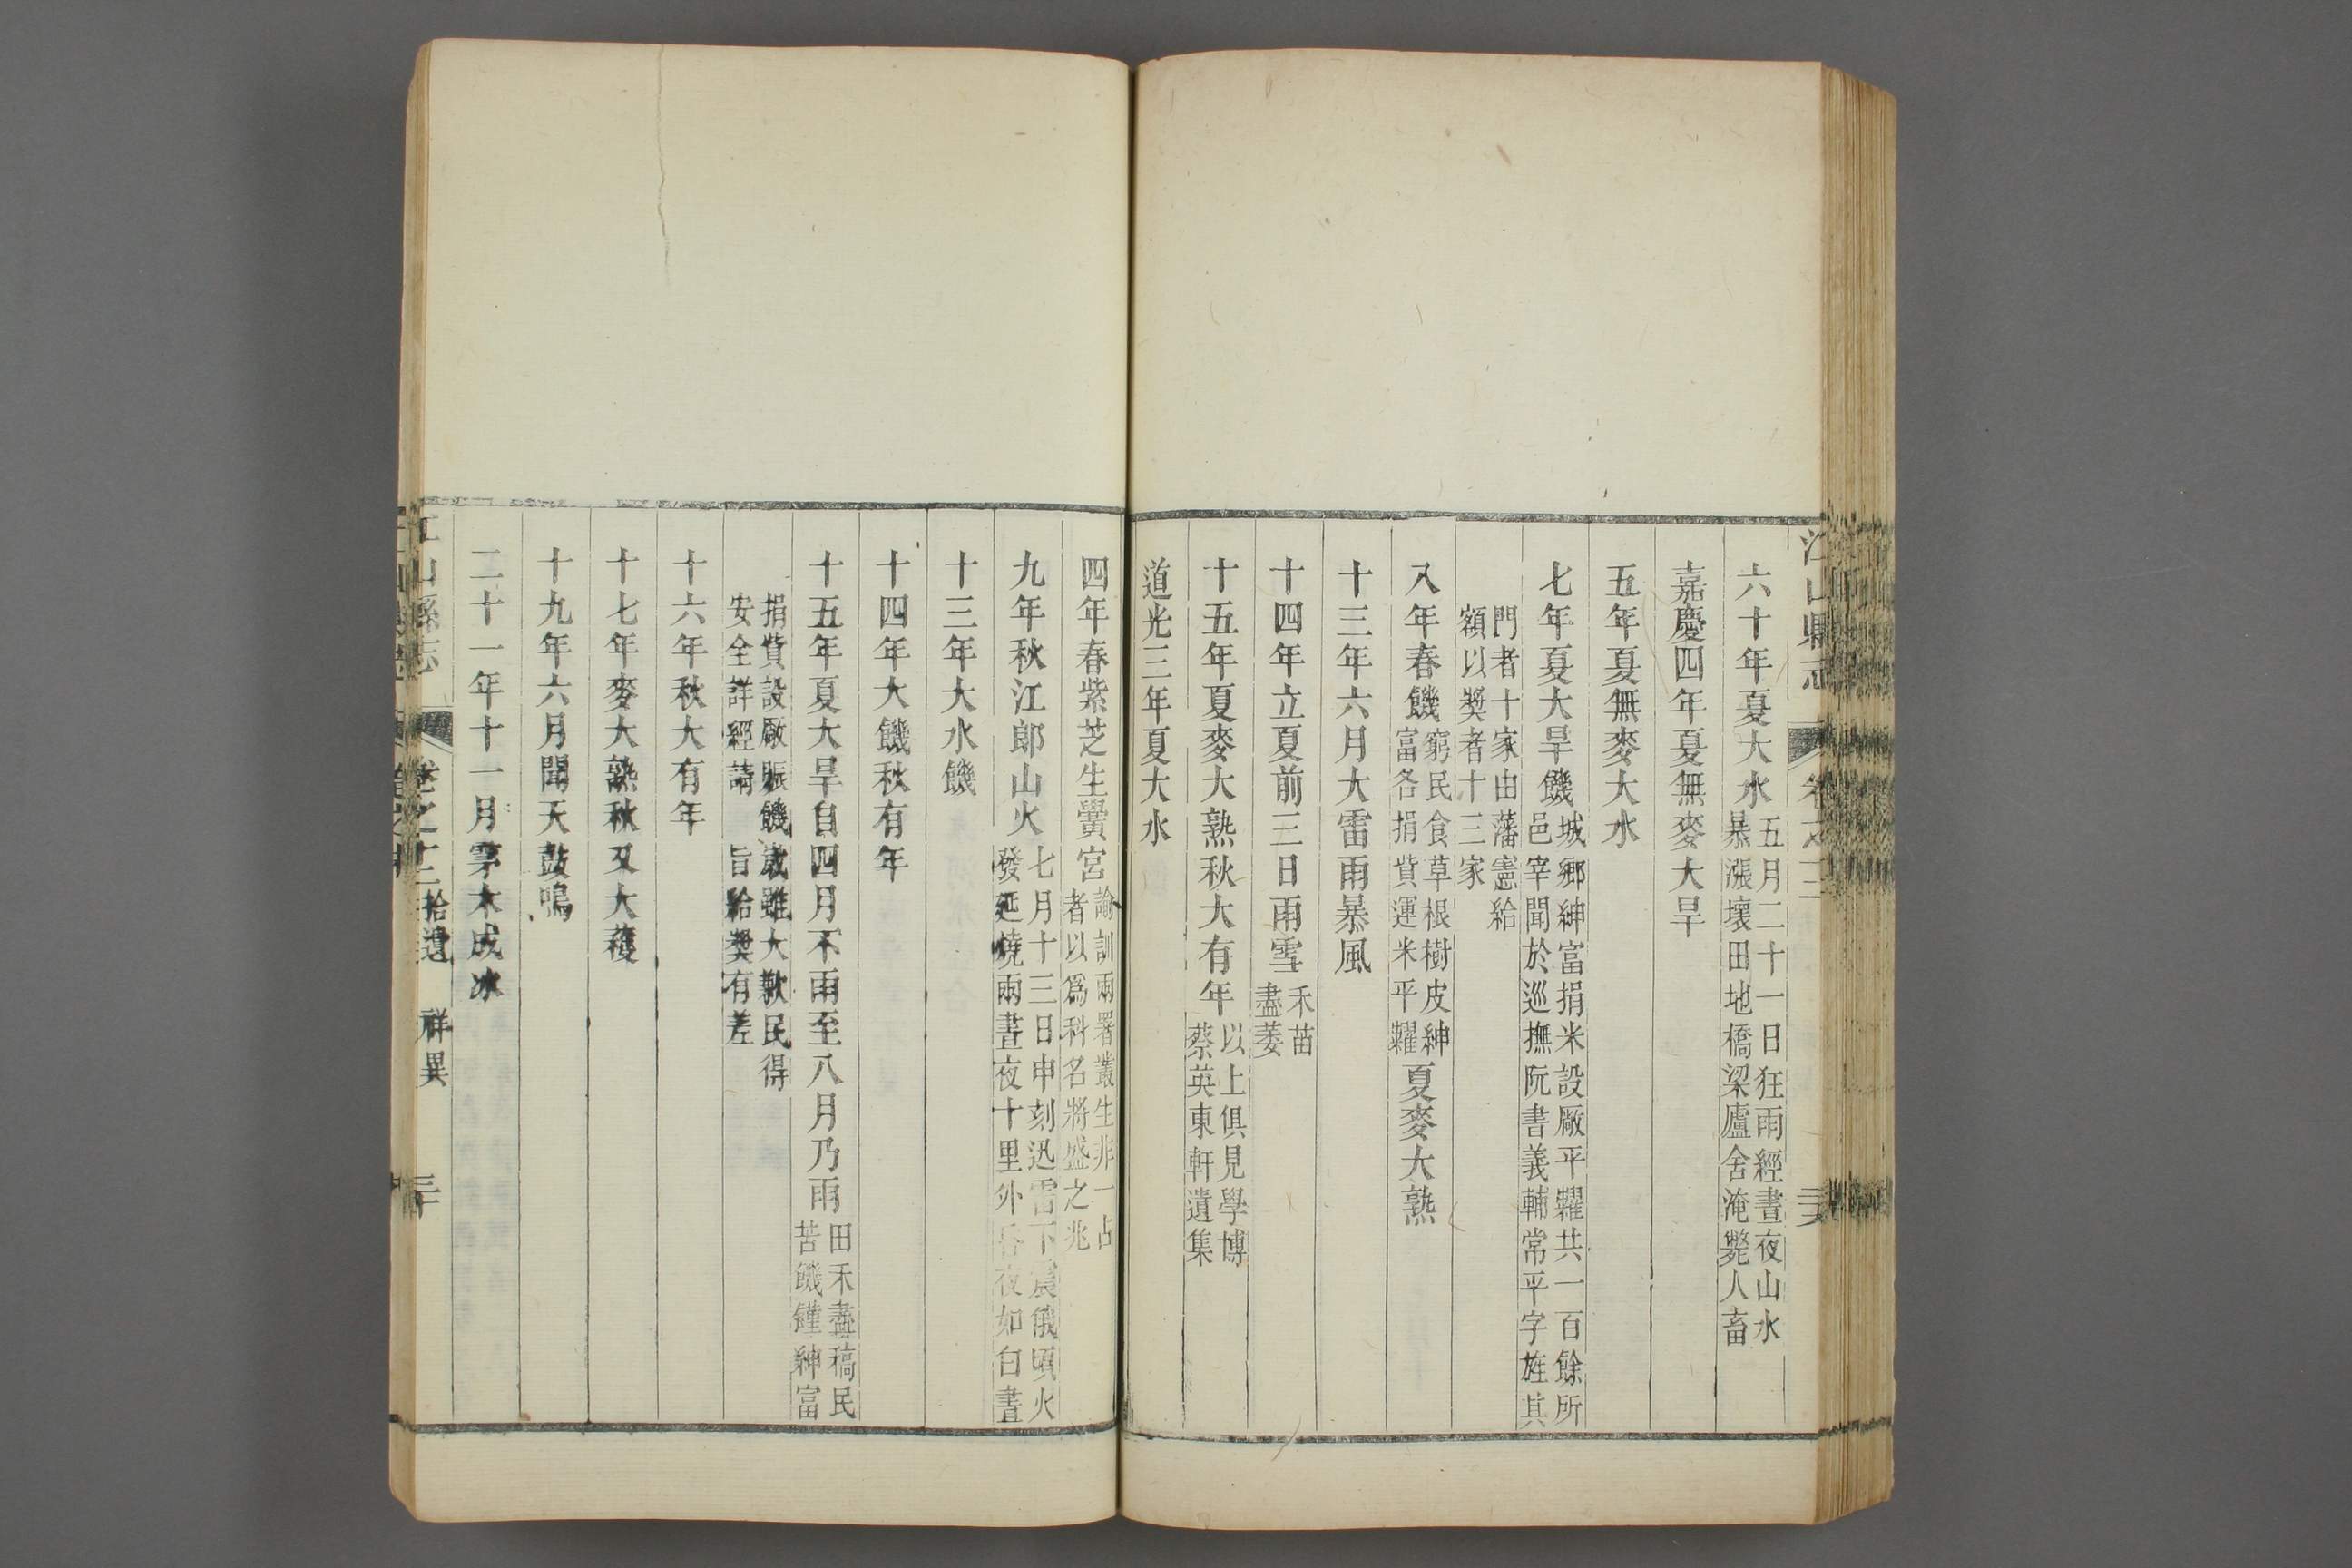 江山縣志
卷之十二
六十年夏大水五月二十一日狂雨經晝夜山水
暴漲壞田地橋梁廬舍淹斃人畜
嘉慶四年夏無麥大旱
五年夏無麥大水
七年夏大旱饑城鄉紳富捐米設厰平糶共一百餘所
邑宰聞於巡撫阮書義輔常平字旌其
門者十家由藩憲給
額以奬者十三家
八年春饑窮民食草根樹皮紳
富各捐貲運米平糶夏麥大熟
十三年六月大雷雨暴風
十四年立夏前三日雨雪禾苗
盡萎
十五年夏麥大熟秋大有年以上俱見學博
蔡英東軒遺集
道光三年夏大水
四年春紫芝生黌宮諭訓兩署叢生非一占
者以爲科名將盛之兆
九年秋江郎山火七月十三日申刻迅雷下震俄頃火
發延燒兩晝夜十里外昏夜如白晝
十三年大水饑
十四年大饑秋有年
十五年夏大旱自四月不雨至八月乃雨田禾盡稿民
苦饑饉紳富
捐貲設厰賑饑歲雖大歉民得
安全詳經請 旨給奬有差
十六年秋大有年
十七年麥大熟秋又大穫
十九年六月聞天鼓鳴
二十一年十一月雾木成冰
江山縣志
卷之十二拾遺 祥異 三十